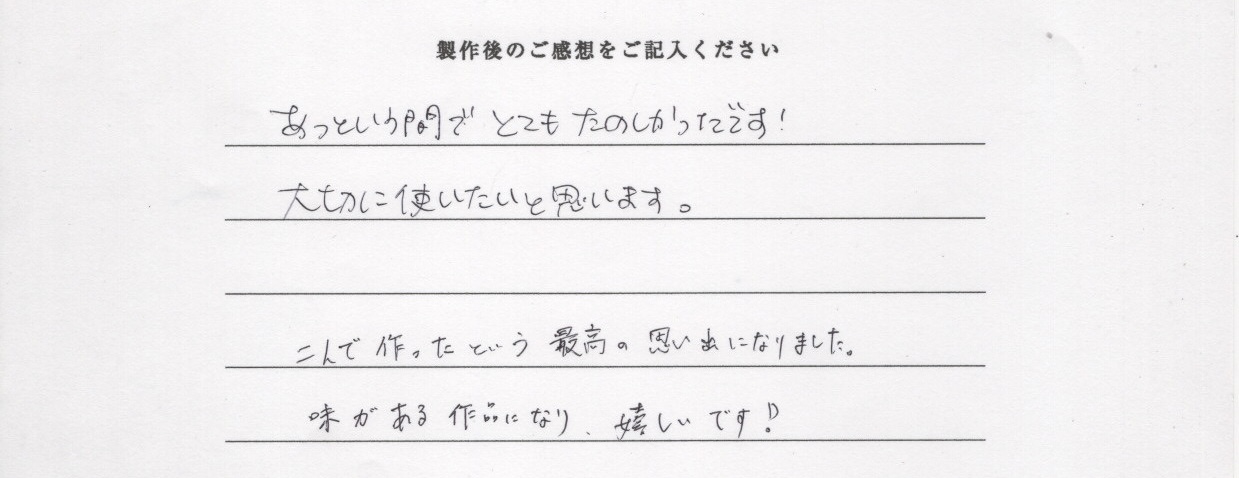 製作後のご感想をご記入ください
あっという間で とても たのしかったです！
大切に使いたいと思います。
二人で 作ったという 最高の 思い出になりました。
味がある 作品になり、嬉しいです！